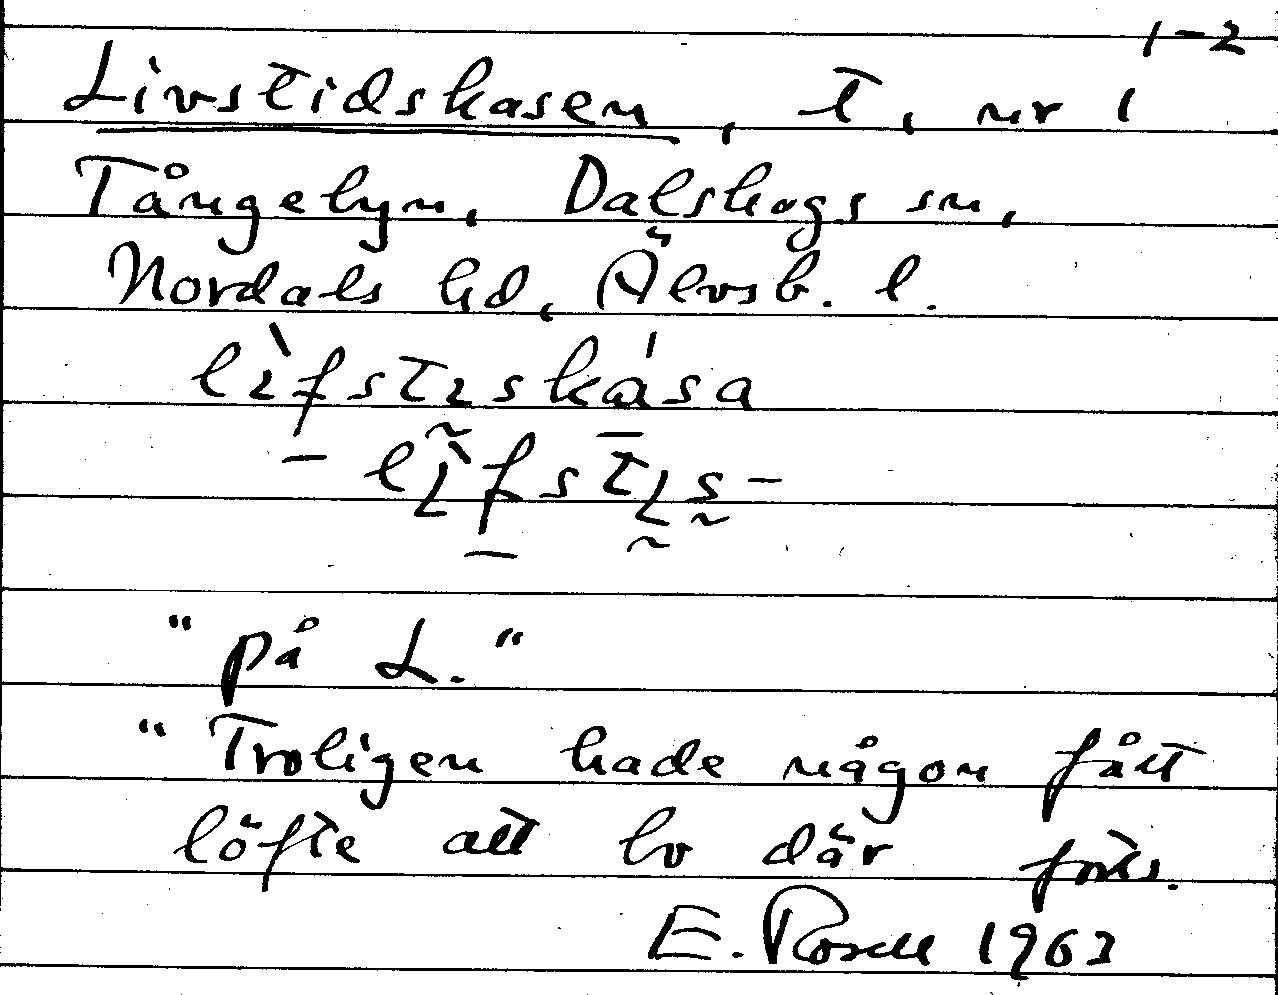 1-2
Livstidskasen, t, nr 1
Tångelyn, Dalskogs sn,
Nordals hd, Älvsb. l.
lìfstɩskása
- lìfstɩs-
"på L."
"Troligen hade någon fått
löfte att bo där forts.
E. Rosell 1963